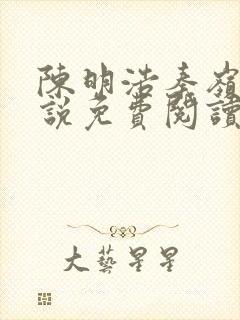 陳明浩秦嶺
說免費閱讀
大藝星星